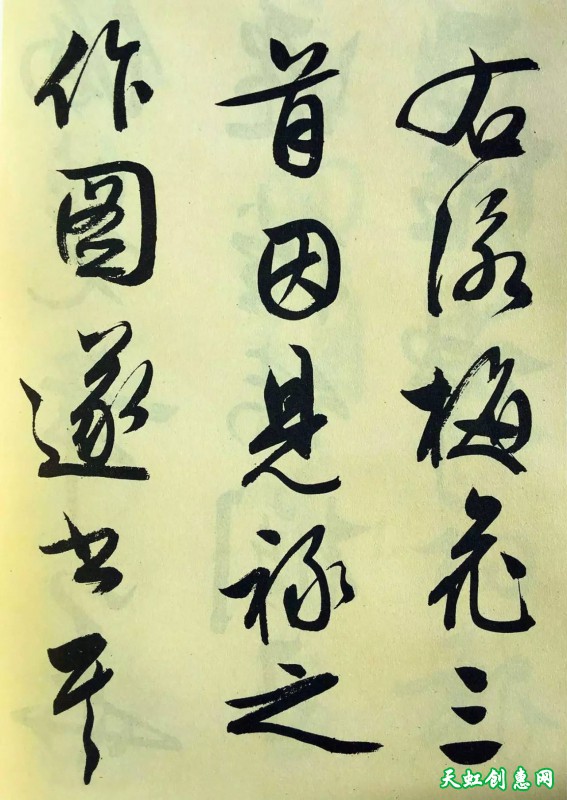 右詠梅花三
首因見祿之
作圖遂書其
天虹创惠网